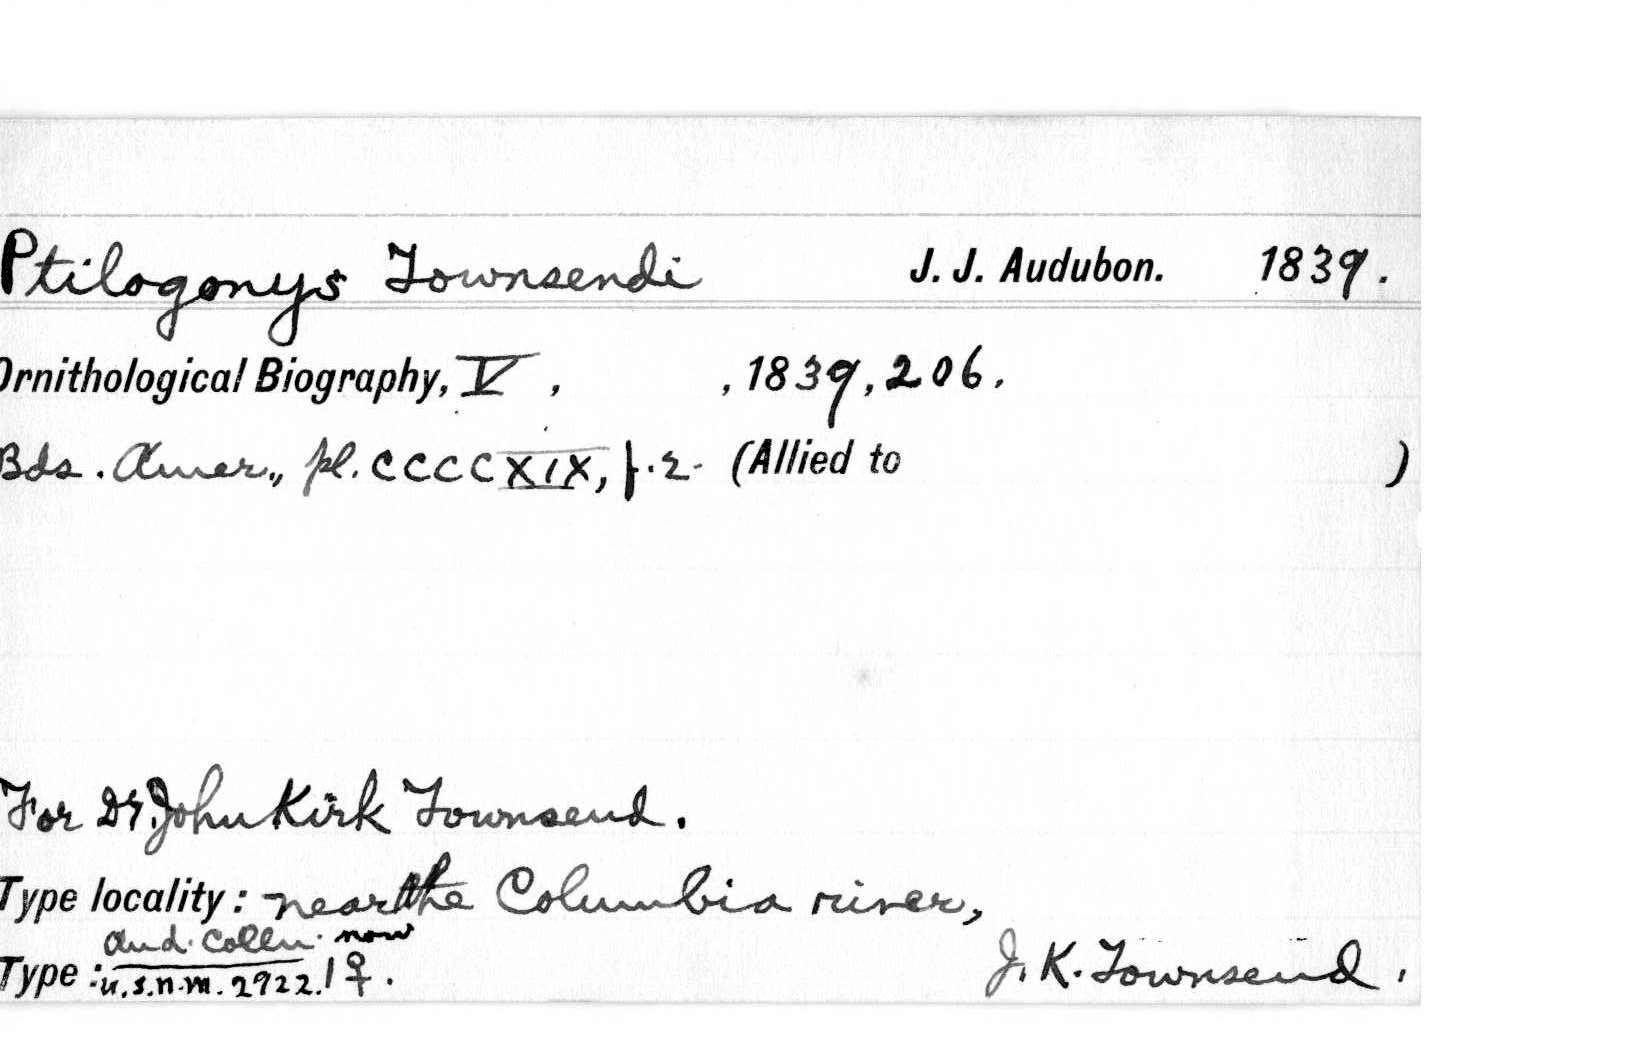 Ptilogonys Townsendi J. J. Audubon. 1839.
Ornithological Biography, V, , 1839, 206.
Bds. Amer., pl. CCCCXIX, f. 2. (Allied to )
For Dr. John Kirk Townsend.
Type locality: near the Columbia river,
Aud. Colln. now
J. K. Townsend.
Type: U.S.N.M. 2922. ! ♀.